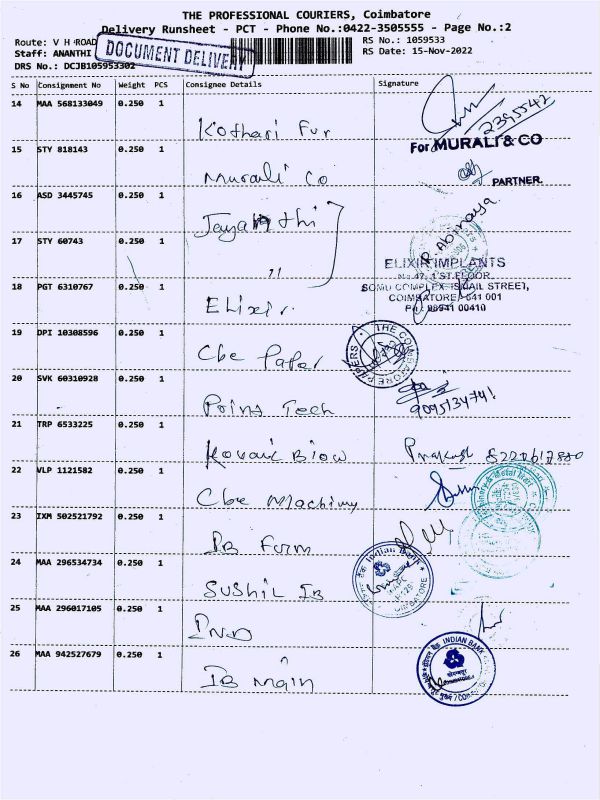 THE PROFESSIONAL COURIERS, Coimbatore
Delivery Runsheet - PCT - Phone No.:0422-3505555 - Page No.:2
Route: V H ROAD
RS No.: 1059533
Staff: ANANTHI
RS Date: 15-Nov-2022
DRS No.: DCJB105953302
DOCUMENT DELIVERY
S No Consignment No Weight PCS Consignee Details Signature
14 MAA 568133049 0.250 1
Kothari Fur
2395542
15 STY 818143 0.250 1
For MURALI & CO
Murali Co
PARTNER.
16 ASD 3445745 0.250 1
Jayanthi
R. Abinaya
17 STY 60743 0.250 1
"
ELIXIR IMPLANTS
No.47, 1'ST FLOOR
18 PGT 6310767 0.250 1
SOMU COMPLEX ISMAIL STREET,
COIMBATORE - 641 001
Elixir.
Ph: 98941 00410
19 DPI 10308596 0.250 1
Cbe Paper
THE COIMBATORE PAPERS
20 SVK 60310928 0.250 1
Point Tech
21 TRP 6533225 0.250 1
Prakash
22 VLP 1121582 0.250 1
Cbe Machiny
23 IXM 502521792 0.250 1
IB Form
24 MAA 296534734 0.250 1
Sushil IB
Indian Bank
COIMBATORE
25 MAA 296017105 0.250 1
26 MAA 942527679 0.250 1
IB Main
INDIAN BANK